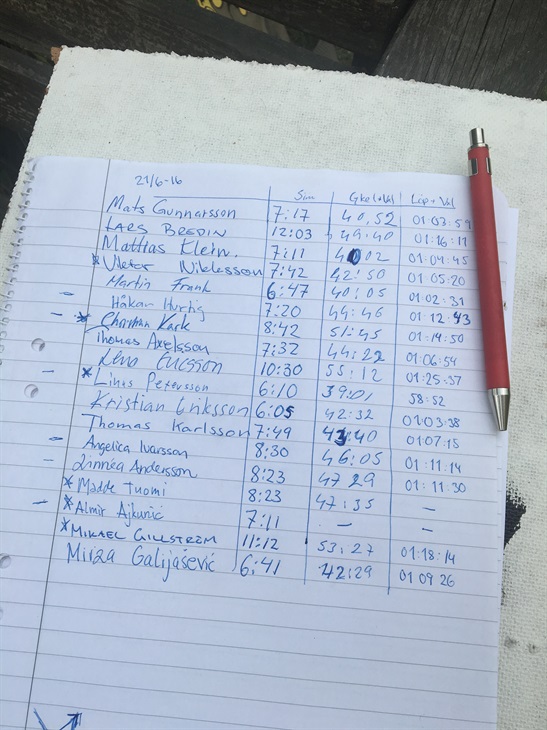 21/6-16
Sim Cykel+Väl Löp+Väl
Mats Gunnarsson 7:17 40,52 01:03:57
LARS BREDIN 12:03 49:40 01:16:17
Mattias Klein. 7:11 4002 01:04:45
* Niklasson 7:42 42:50 01:05:20
Martin Frank 6:47 40:05 01:02:31
- Håkan Hurtig 7:20 44:46 01:12:43
- * Kark 8:42 51:45 01:14:50
Thomas Axelsson 7:32 44:22 01:06:54
Ericsson 10:30 55:12 01:25:37
- * Linus Petersson 6:10 39:01 58:52
Kristian Eriksson 6:05 42:32 01:03:38
Thomas Karlsson 7:49 43:40 01:07:15
- Angelica Ivarsson 8:30 46:05 01:11.14
- Linnéa Andersson 8:23 47 29 01:11.30
* Madde Tuomi 8:23 47:35 -
- * Almir Ajkunic 7:11 - -
* MIKAEL GILLSTRÖM 11:12 53:27 01:18:14
Mirza Galijašević 6:41 42:29 01 09 26